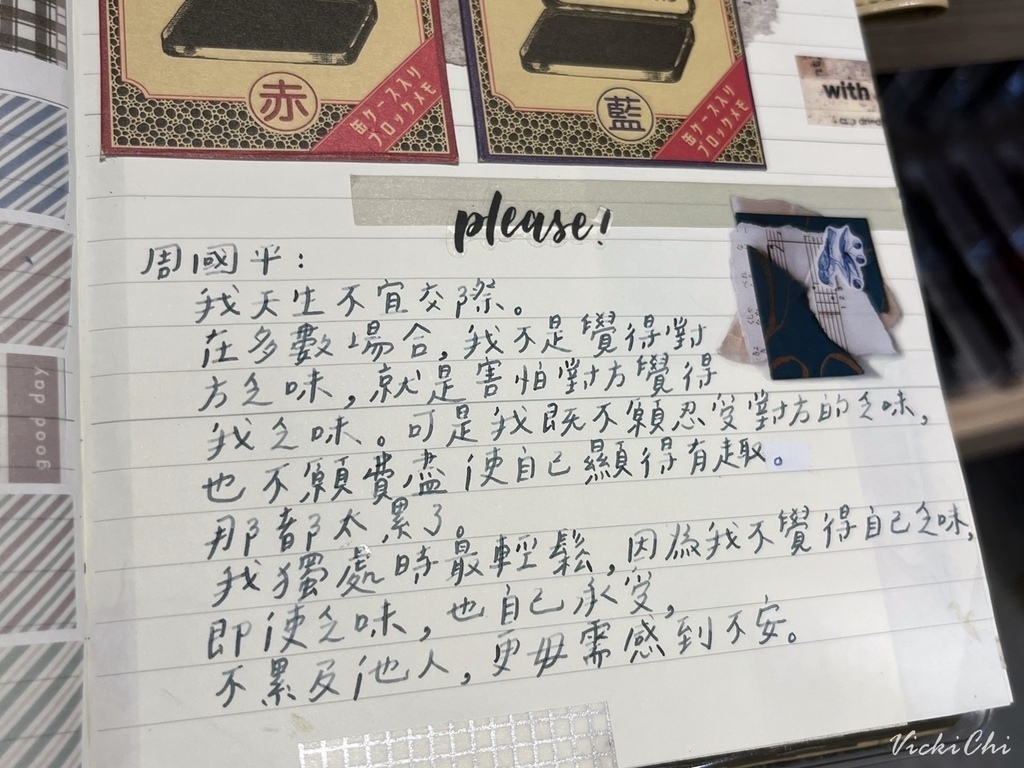 赤
缶ケース入り
ブロックメモ
藍
缶ケース入り
ブロックメモ
with
please!
good day
周國平:
我天生不宜交際。
在多數場合,我不是覺得對
方乏味,就是害怕對方覺得
我乏味。可是我既不願忍受對方的乏味,
也不願費盡使自己顯得有趣。
那都太累了。
我獨處時最輕鬆,因為我不覺得自己乏味,
即使乏味,也自己承受,
不累及他人,更毋需感到不安。
VickiChi